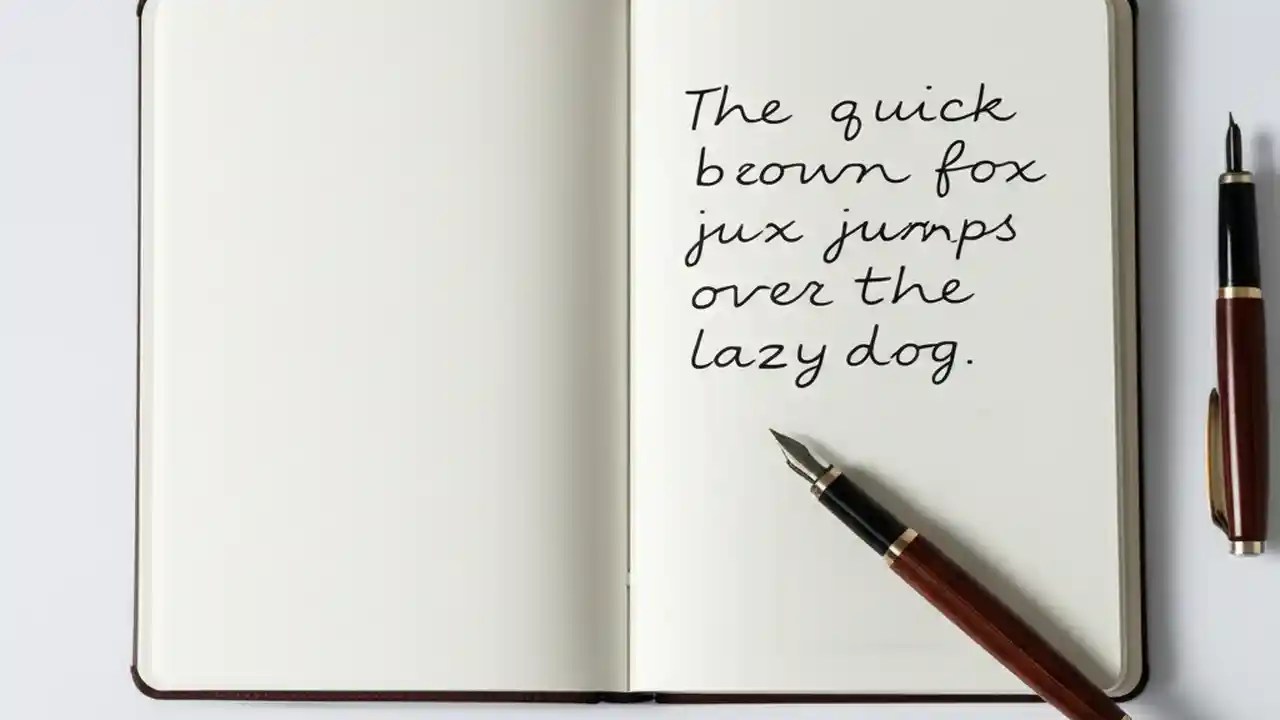 The quick
brown fox
jux jumps
over the
lazy dog.